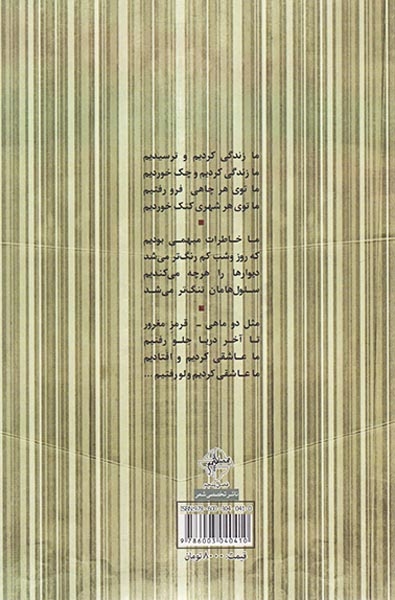 ما زندگی کردیم و ترسیدیم
ما زندگی کردیم و چک خوردیم
ما توی هر چاهی فرو رفتیم
ما توی هر شهری کتک خوردیم
ما خاطرات مبهمی بودیم
که روز و شب کم رنگ‌تر می‌شد
دیوارها را هرچه می‌کندیم
سلول‌هامان تنگ‌تر می‌شد
مثل دو ماهی ـ قرمز مغرور
تا آخر دریا جلو رفتیم
ما عاشقی کردیم و افتادیم
ما عاشقی کردیم و لو رفتیم ...
ناشر تخصصی شعر
9 786003 040410
قیمت: ۸۰۰۰ تومان